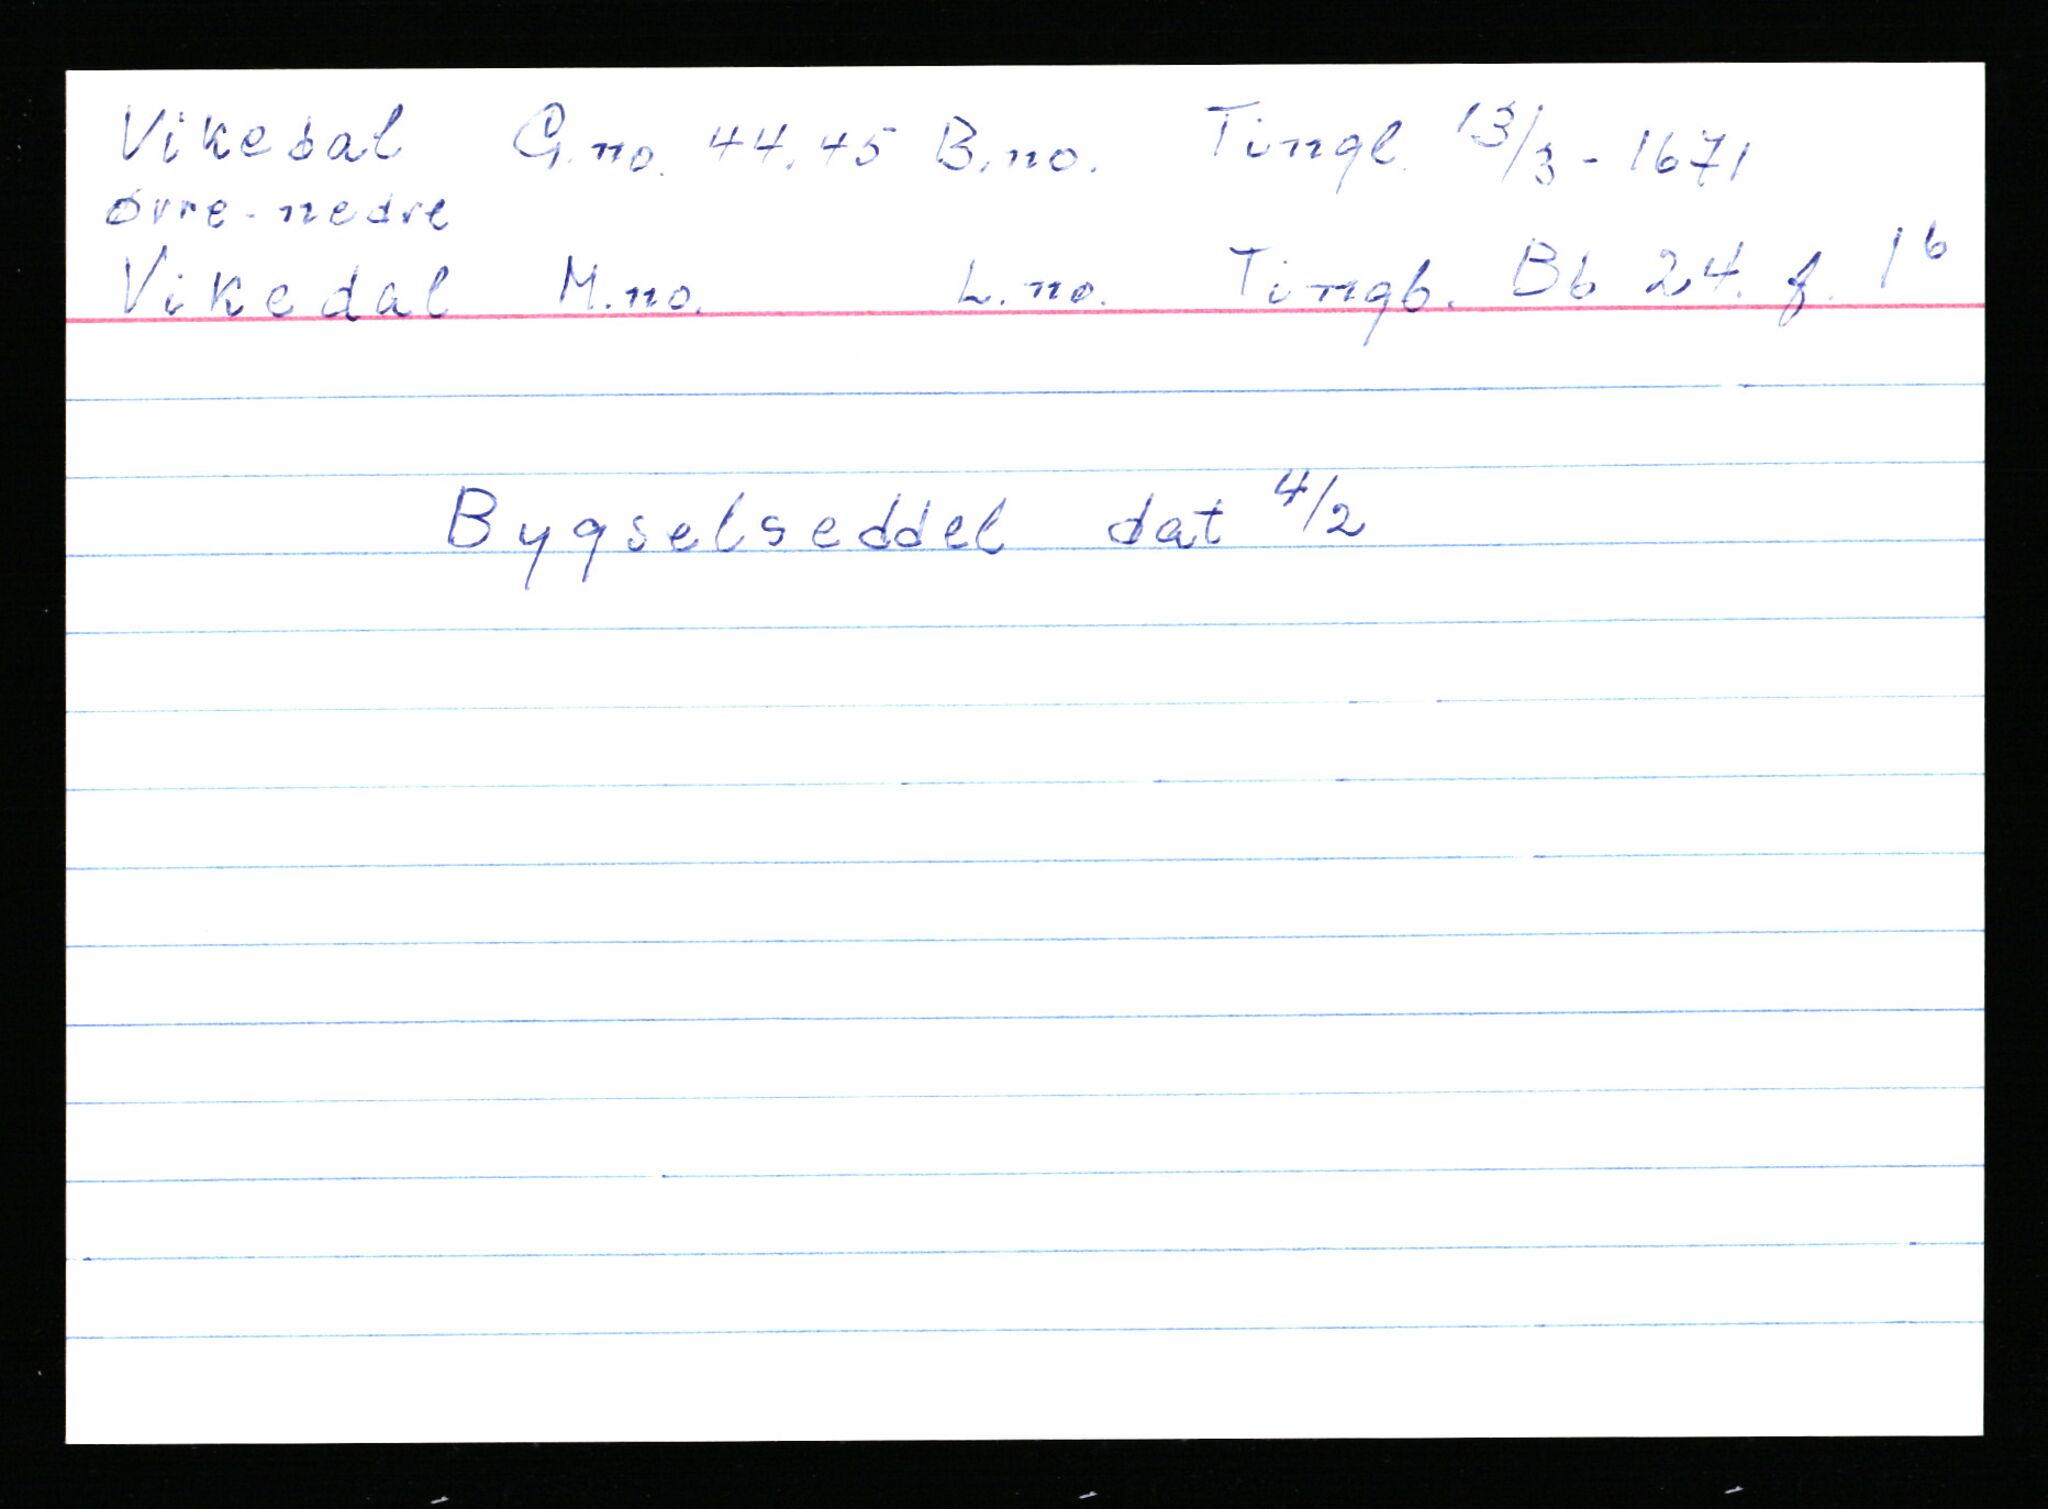 Vikesal G.no. 44.45 B.no. Tingl. 13/3 - 1671
øvre-nedre
Vikedal M.no. L.no. Tingb. Bb 24. f. 1b
Bygselseddel dat 4/2